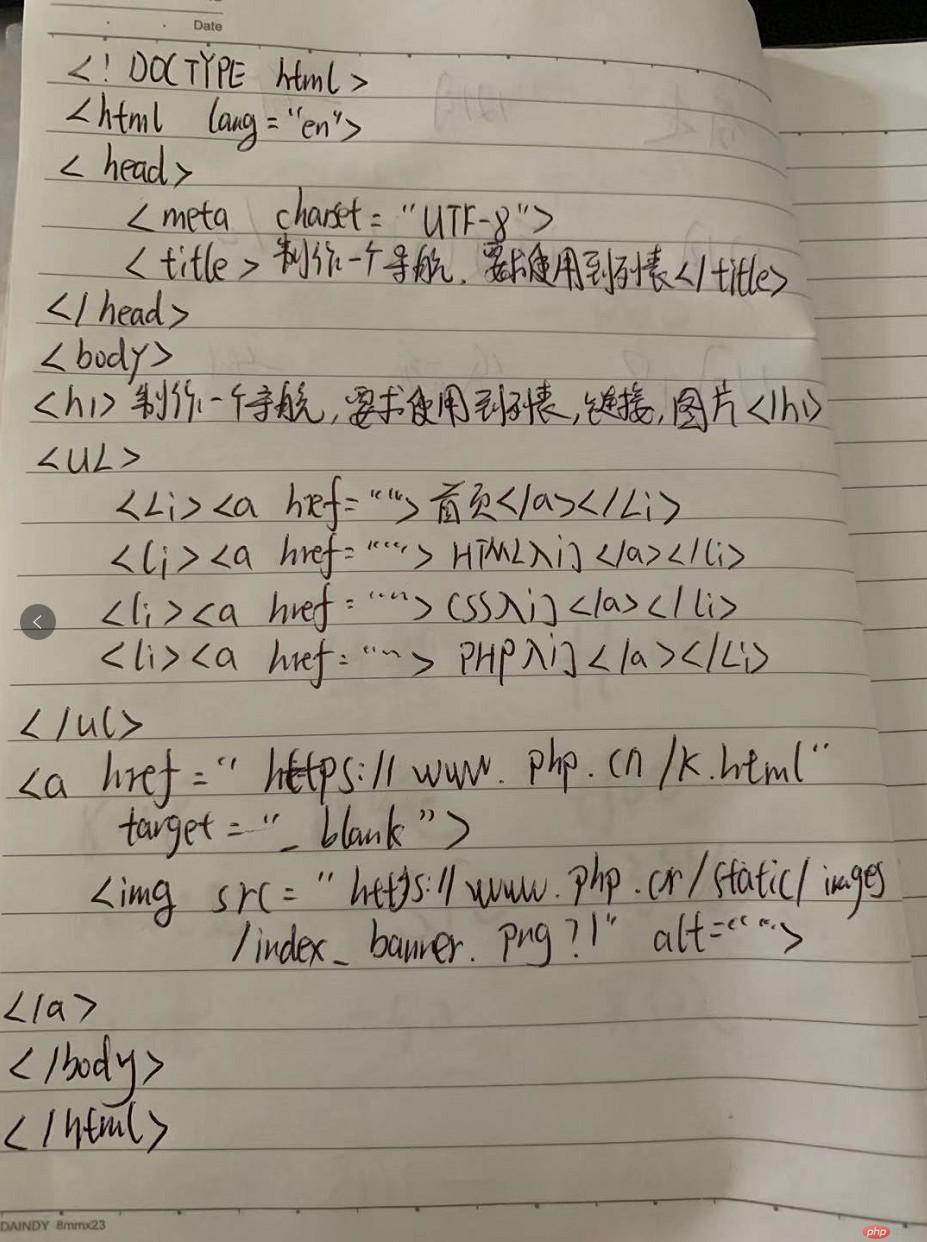 Date
<! DOCTYPE html>
<html lang="en">
<head>
<meta charset="UTF-8">
<title>制作一个导航,要求使用到列表</title>
</head>
<body>
<h1>制作一个导航,要求使用到列表,链接,图片</h1>
<UL>
<Li><a href="">首页</a></Li>
<li><a href="">HTML入门</a></li>
<li><a href="">CSS入门</a></li>
<li><a href="">PHP入门</a></Li>
</ul>
<a href="https://www.php.cn/k.html"
target="_blank">
<img src="https://www.php.cn/static/images
/index_banner.png?1" alt="">
</a>
</body>
</html>
DAINDY 8mmx23
php